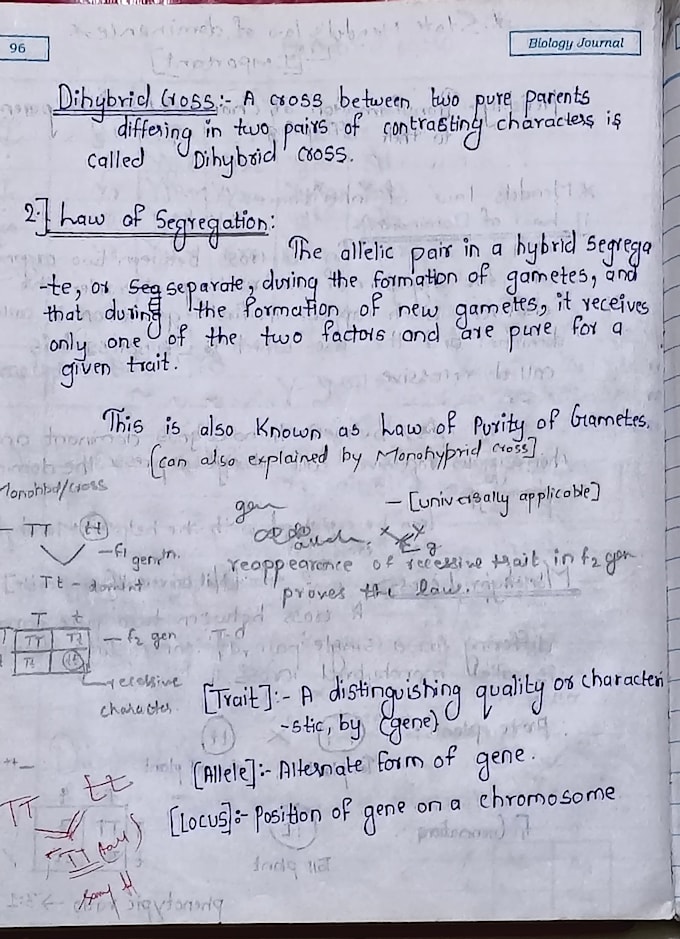 96
Biology Journal
Dihybrid Cross:- A cross between two pure parents
differing in two pairs of contrasting characters is
called Dihybrid cross.
2.] Law of Segregation:
The allelic pair in a hybrid segrega
-te, or seg separate, during the formation of gametes, and
that during the formation of new gametes, it receives
only one of the two factors and are pure for a
given trait.
This is also Known as Law of Purity of Gametes.
[can also explained by Monohybrid cross]
- [universally applicable]
gen
TT tt
- F1 gen
reappearance of recessive trait in F2 gen
proves the law.
Tt -
T t
TT Tt - F2 gen
Tt tt
recessive
character
[Trait]:- A distinguishing quality or characteri
-stic, by (gene)
[Allele]:- Alternate form of gene.
[Locus]:- Position of gene on a chromosome
TT tt